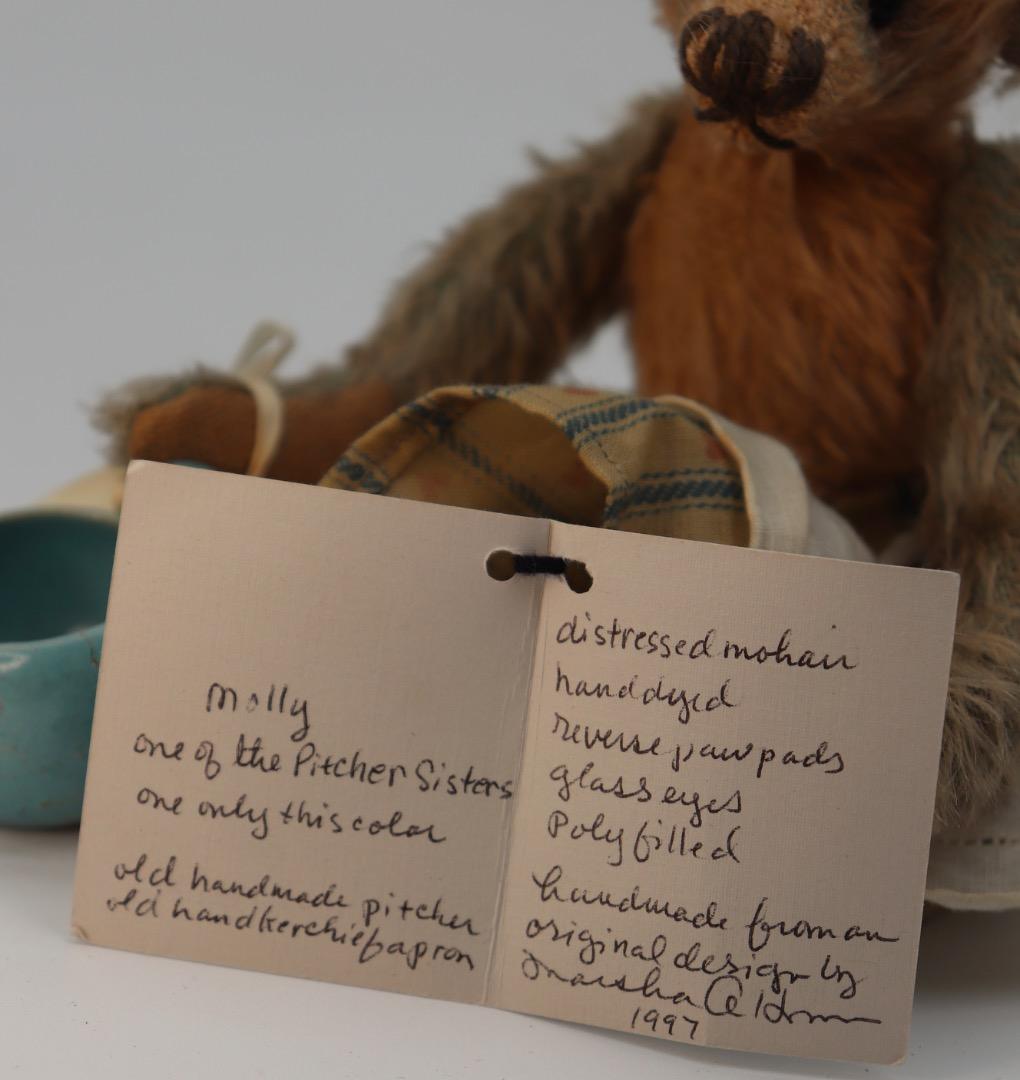 Molly
one of the Pitcher Sisters
one only this color
old handmade pitcher
old handkerchief apron
distressed mohair
hand dyed
reverse paw pads
glass eyes
Poly filled
handmade from an
original design by
Marsha
1997